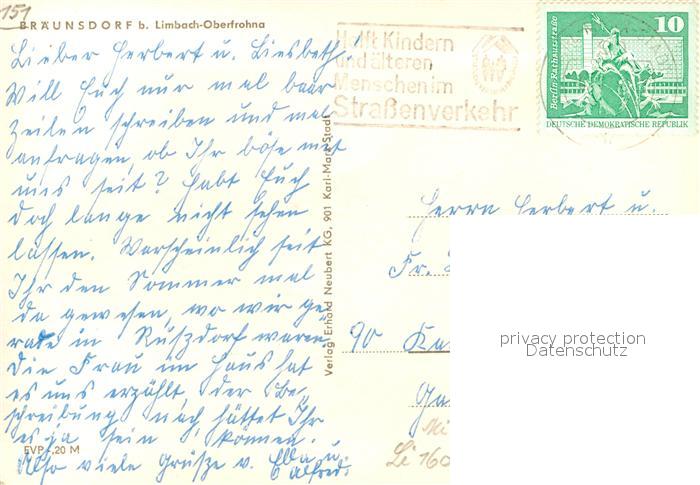 151
BRÄUNSDORF b. Limbach-Oberfrohna
Lieber Herbert u. Liesbeth
Will Euch nur mal baar
Zeilen schreiben und mal
anfragen, ob Ihr böse mit
uns seit? Habt Euch
doch lange nicht sehen
lassen. Warscheinlich seit
Ihr den Sommer mal
da gewesen, wo wir ge
rade in Rußdorf waren.
Die Frau im Haus hat
es uns erzählt, der Be
schreibung nach, hättet Ihr
es ja sein können.
Also viele Grüsze v. Ella u.
Alfred.
EVP -,20 M
Verlag Erhard Neubert KG, 901 Karl-Marx-Stadt
Helft Kindern
und älteren
Menschen im
Straßenverkehr
10
Berlin-Rathausstraße
DEUTSCHE DEMOKRATISCHE REPUBLIK
Herrn Herbert u.
Fr.
90 Ka
Ga
Mi
Li 160
privacy protection
Datenschutz